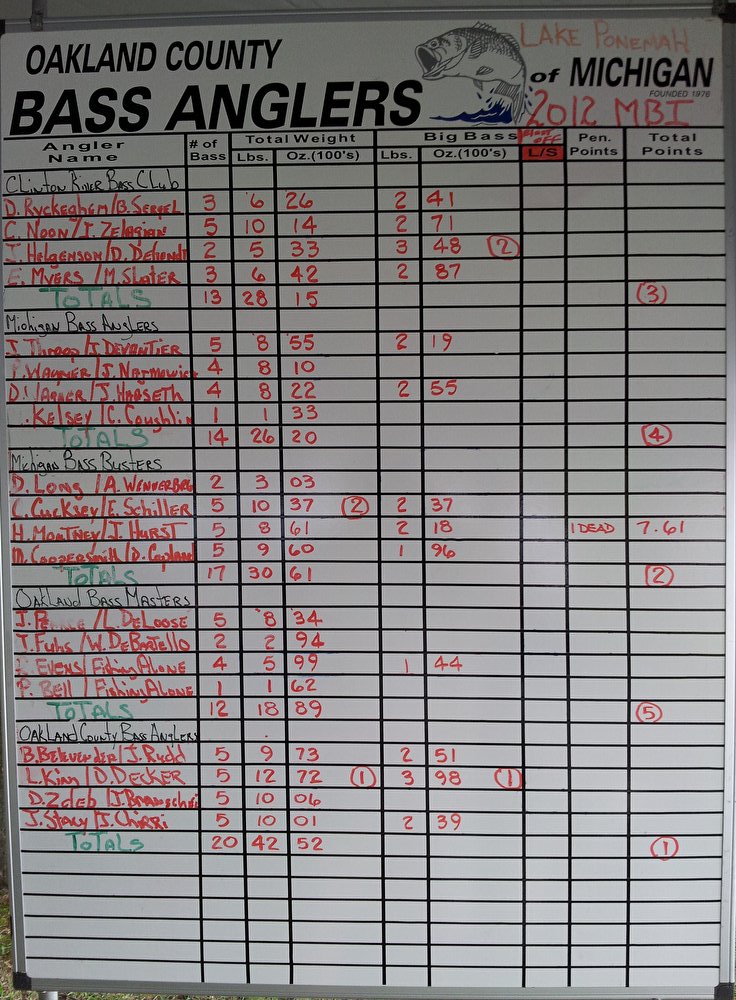 LAKE PONEMAH
OAKLAND COUNTY
BASS ANGLERS
of MICHIGAN
FOUNDED 1976
2012 MBI
Angler Name # of Bass Total Weight Lbs. Oz.(100's) Big Bass Lbs. Oz.(100's) OFF L/S Pen. Points Total Points
CLINTON RIVER BASS CLUB
D. RYCKEGHEM/B. SERGEL 3 6 26 2 41
C. NOON/J. ZELAGIAN 5 10 14 2 71
J. Helgenson/D. 2 5 33 3 48 (2)
E. MYERS/M. SLATER 3 6 42 2 87
TOTALS 13 28 15 (3)
MICHIGAN BASS ANGLERS
J. Throop/J. DEVANTIER 5 8 55 2 19
WAGNER/J. 4 8 10
4 8 22 2 55
KELSEY/C. Coughlin 1 1 33
TOTALS 14 26 20 (4)
MICHIGAN BASS BUSTERS
D. LONG/A. 2 3 03
C. CUCKSEY/E. SCHILLER 5 10 37 (2) 2 37
H. MONTNEY/J. HURST 5 8 61 2 18 1 DEAD 7.61
M. COPPERSMITH/D. 5 9 60 1 96
TOTALS 17 30 61 (2)
OAKLAND BASS MASTERS
J. /L. DELOOSE 5 8 34
T. Fuhs/W. DEBARTELLO 2 2 94
EVENS/FISHING ALONE 4 5 99 1 44
P. BELL/FISHING ALONE 1 1 62
TOTALS 12 18 89 (5)
OAKLAND COUNTY BASS ANGLERS
B. /J. RUDD 5 9 73 2 51
L. KING/D. DECKER 5 12 72 (1) 3 98 (1)
D. Zdeb/J. 5 10 06
J. STACY/J. CHIRRI 5 10 01 2 39
TOTALS 20 42 52 (1)